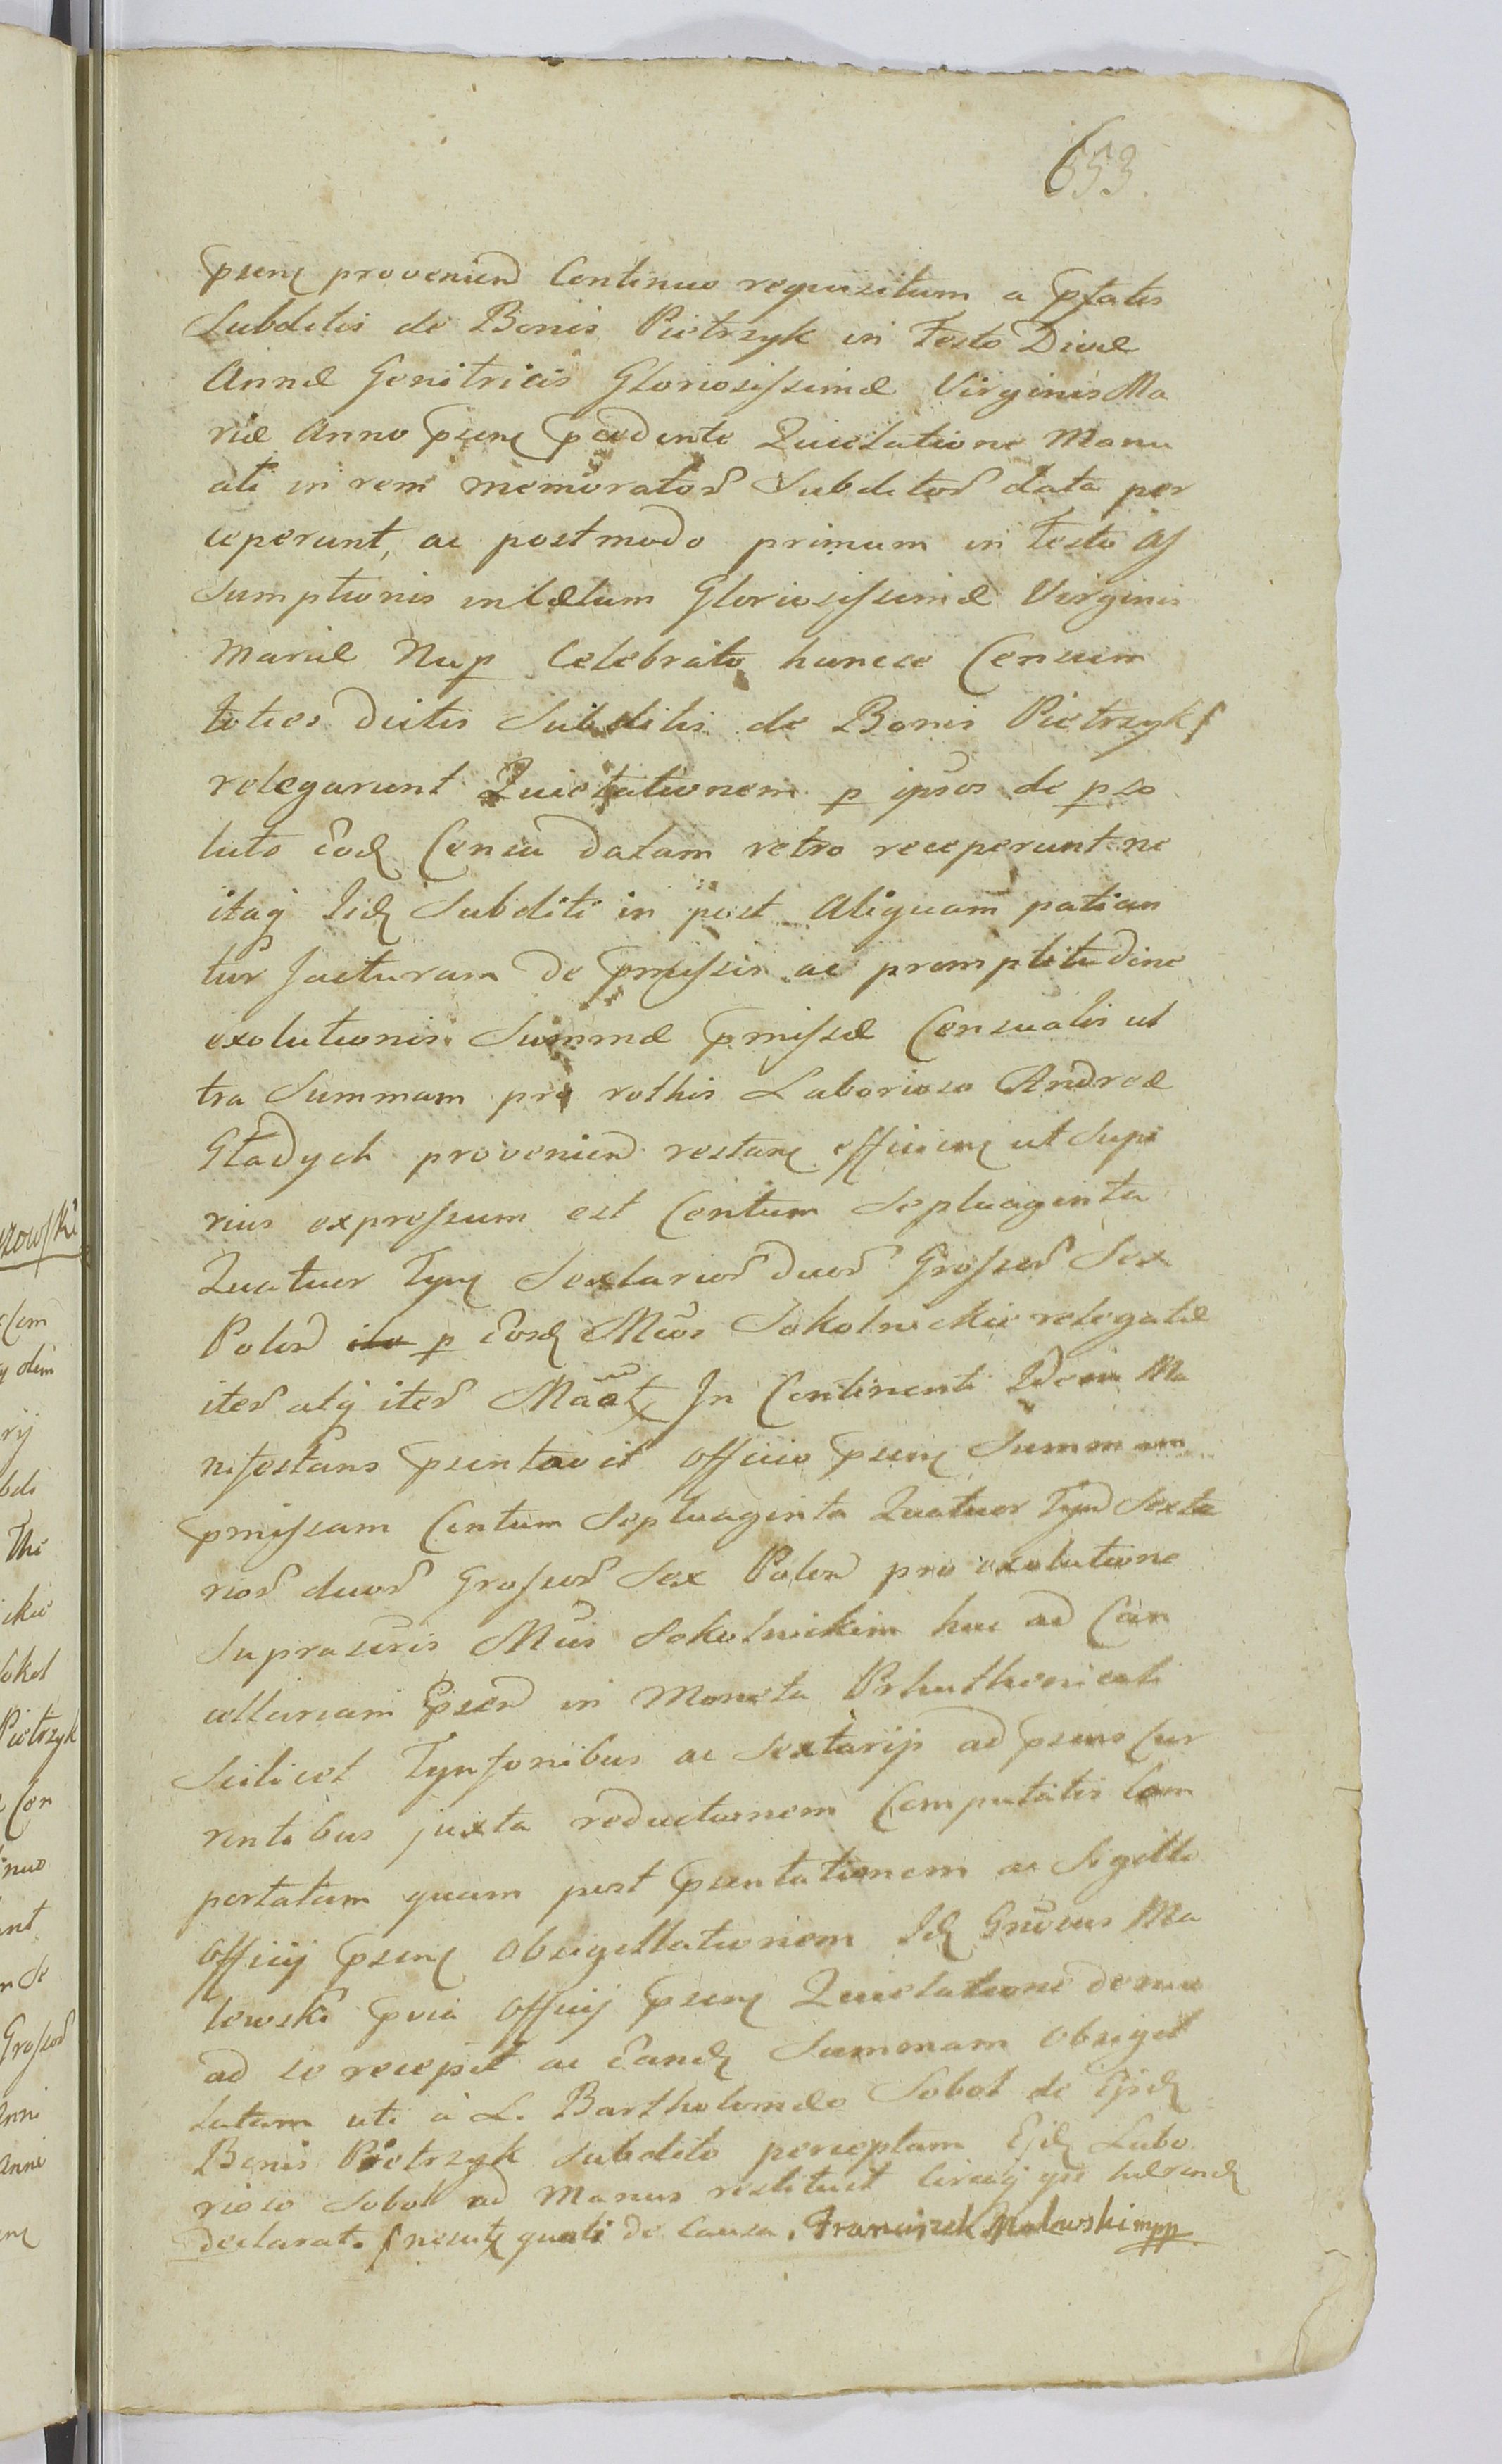 653.
psens proveniend Continuo requisitum a pfatis
Subditis de Bonis Pietrzyk in Festo Divæ
Annæ Genitricis Gloriosissimæ Virginis Ma
riæ Anno psens p Quietatione Manu
ali in rem memorator Subditor data per
ceperunt, ac postmodo primum in Festo As
sumptionis in Cælum Gloriosissimæ Virginis
Mariæ Nup Celebrato huncce Censum
toties dictis Subditis de Bonis Pietrzyk
relegarunt Quietationem p ipsos de pso
luto Eod Censu datam retro receperunt ne
itaq Iid Subditi in post Aliquam patian
tur Jacturam de pmissis ac promptitudine
exolutionis Summæ pmissæ Censualis ul
tra Summam pro rothis Laborioso Andreæ
Gładych proveniend restans efficiens ut Supe
rius expressum est Centum Septuaginta
Quatuor Tynf Sextarior duor Grossor Sex
Polon p Eosd Mcos Sokolnickie relegatæ
iter atq iter In Continenti Idem Ma
nifestans psentavit Officio psens Summam
pmissam Centum Septuaginta Quatuor Tynf Sexta
rior duor Grossor Sex Polon pro exolutione
Suprascris Mcis Sokolnickim huc ad Can
cellariam psen in Moneta Prhuthenicali
Scilicet Tynfonibus ac Sextarijs ad psens Cur
rentibus juxta reductionem Computatis Com
portatam quam post psentationem ac Sigillo
Officij psens Obsigillationem Id Gnosus Ma
lewski pvia Officij psens Quietatione denuo
ad se recepit ac Eand Summam obsigil
latam uti à L. Bartholomeo Sobol de Ijsd
Bonis Pietrzyk Subdito perceptam Eid Labo
rioso Sobol ad Manus restituit
declarat. de Causa. Franciszek Malewski mpp